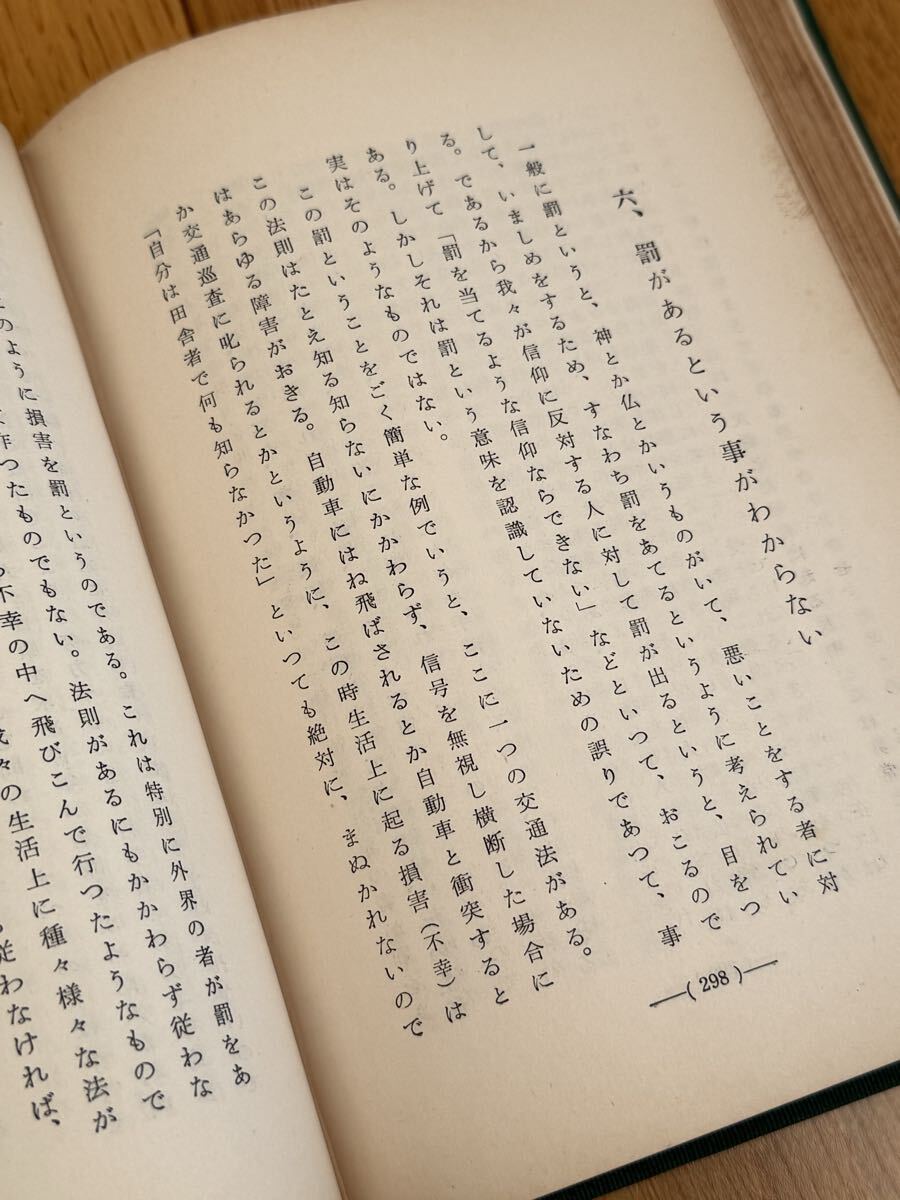 六、罰があるという事がわからない
一般に罰というと、神とか仏とかいうものがいて、悪いことをする者に対
して、いましめをするため、すなわち罰をあてるというように考えられてい
る。であるから我々が信仰に反対する人に対して罰が出るというと、目をつ
り上げて「罰を当てるような信仰ならできない」などといつて、おこるので
ある。しかしそれは罰という意味を認識していないための誤りであつて、事
実はそのようなものではない。
この罰ということをごく簡単な例でいうと、ここに一つの交通法がある。
この法則はたとえ知る知らないにかかわらず、信号を無視し横断した場合に
はあらゆる障害がおきる。自動車にはね飛ばされるとか自動車と衝突すると
か交通巡査に叱られるとかというように、この時生活上に起る損害(不幸)は
「自分は田舎者で何も知らなかつた」といつても絶対に、まぬかれないので
(298)
のように損害を罰というのである。これは特別に外界の者が罰をあ
作つたものでもない。法則があるにもかかわらず従わな
不幸の中へ飛びこんで行つたようなもので
々の生活上に種々様々な法が
従わなければ、